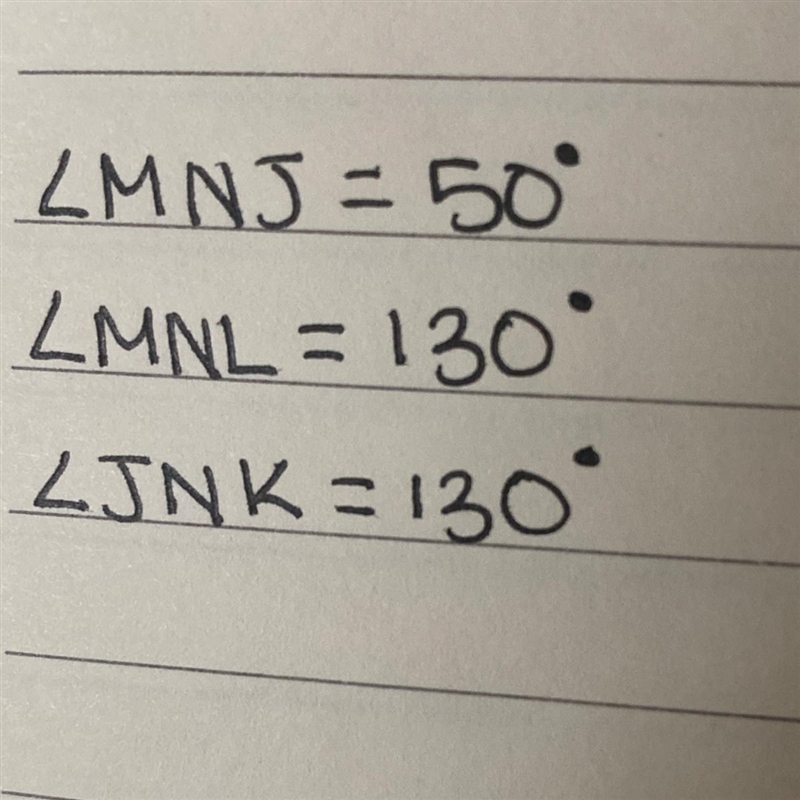 ∠MNJ = 50°
∠MNL = 130°
∠JNK = 130°